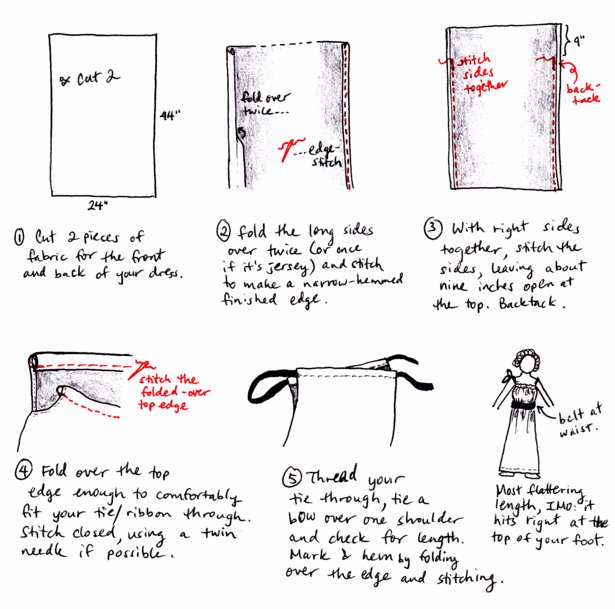 Cut 2
44"
24"
① Cut 2 pieces of
fabric for the front
and back of your dress.
fold over
twice...
...edge-
stitch
② Fold the long sides
over twice (or once
if it's jersey) and stitch
to make a narrow-hemmed
finished edge.
9"
stitch
sides
together
back-
tack
③ With right sides
together, stitch the
sides, leaving about
nine inches open at
the top. Backtack.
stitch the
folded-over
top edge
④ Fold over the top
edge enough to comfortably
fit your tie/ribbon through.
Stitch closed, using a twin
needle if possible.
⑤ Thread your
tie through, tie a
bow over one shoulder
and check for length.
Mark & hem by folding
over the edge and stitching.
belt at
waist.
Most flattering
length, IMO: it
hits right at the
top of your foot.